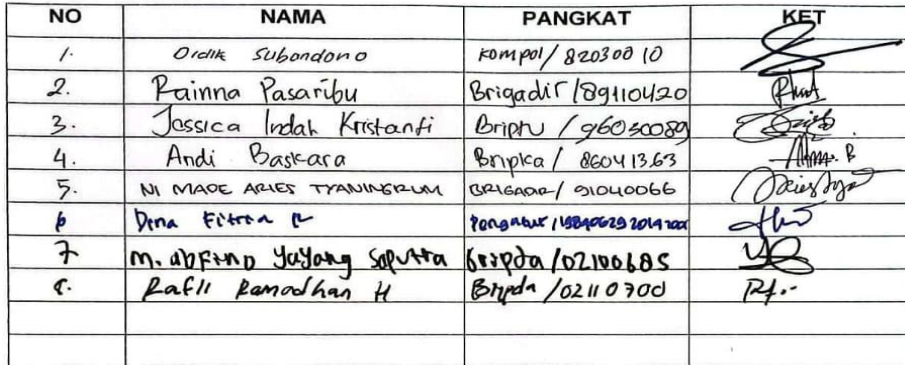 NO NAMA PANGKAT KET
1. Didik Subandono Kompol/ 82030010
2. Rainna Pasaribu Brigadir /89110420
3. Jessica Indah Kristanti Briptu / 96030089
4. Andi Baskara Bripka / 86041363
5. NI MADE ARIES TYANINGRUM BRIGADIR/ 91040066
6 Dina Fitria
7 M. Yayang Saputra Bripda /02100685
8. Rafli Ramadhan H Bripda /02110700